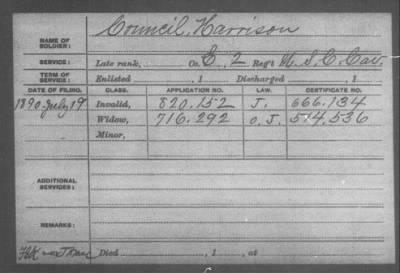 NAME OF SOLDIER: Council, Harrison
SERVICE: Late rank, Co. E, 2 Reg't U. S. C. Cav.
TERM OF SERVICE: Enlisted , 1 Discharged , 1
DATE OF FILING. CLASS. APPLICATION NO. LAW. CERTIFICATE NO.
1890 July 19 Invalid, 820.152 J. 666.134
Widow, 716.292 O. J. 514.536
Minor,
ADDITIONAL SERVICES:
REMARKS:
Died , 1 , at